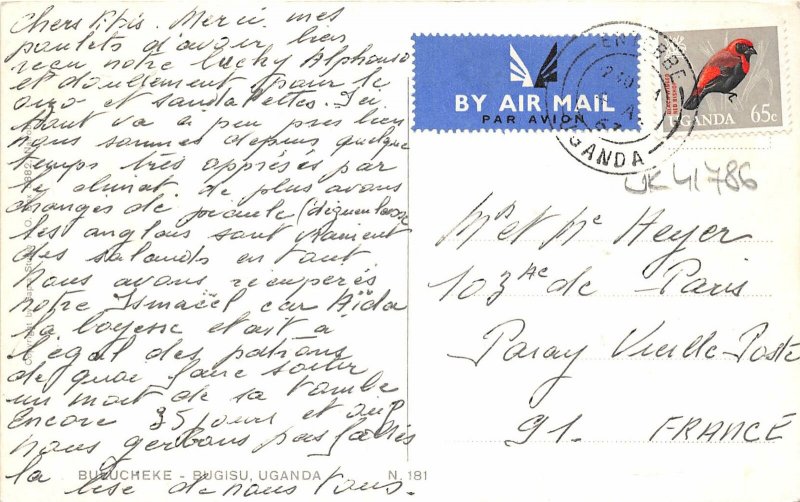 Chers Mer ci mes
poulets d'avoir bien
reçu notre lucky Alphonso
et doublement pour le
et sandalettes. Ici
tout va à peu près bien
nous sommes depuis quelque
temps très oppressés par
le climat. de plus avons
changés de
les anglais sont vraiment
des salauds en tout
Nous avons récuperés
notre Ismaël car Aïda
la boyesse etait à
l'égal des patrons
de quoi faire sortir
un mort de sa tombe
Encore 35 jours et
nous pas
la bise de nous tous.
BY AIR MAIL
PAR AVION
ENTEBBE
UGANDA
RED BISHOP
UGANDA 65c
UK 41786
Mr et Me Heyer
103 Ac de Paris
Paray Vieille-Poste
91. FRANCE
BUBUCHEKE - BUGISU, UGANDA N. 181